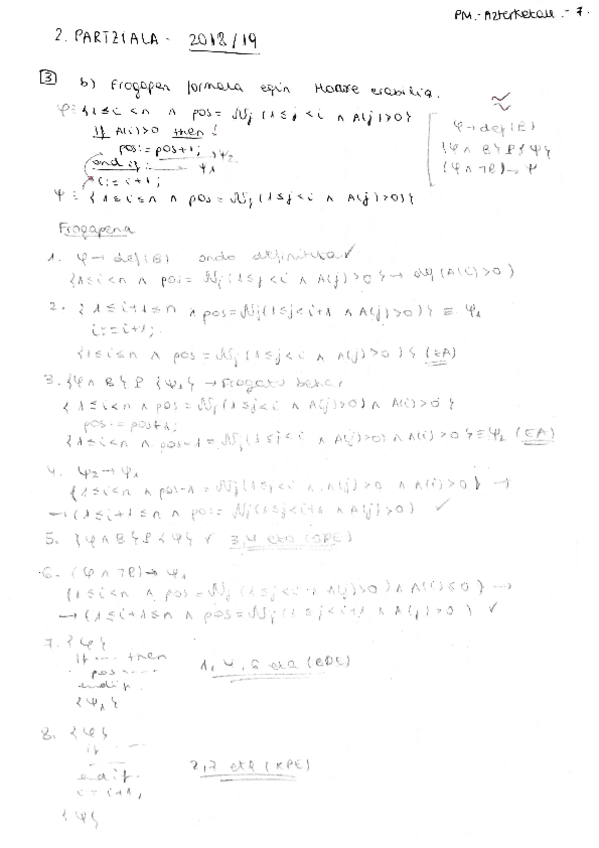 PM.- Azterketak.- 7.
2. PARTZIALA - 2018/19
3 b) Frogapen formala egin Hoare erabiliz.
φ ≡ {1≤i<n ∧ pos = Nj (1≤j<i ∧ A(j)>0)}
if A(i)>0 then
pos := pos+1; → ψ₂
end if; ψ₁
i := i+1;
ψ ≡ {1≤i≤n ∧ pos = Nj (1≤j<i ∧ A(j)>0)}
φ → def(B)
{φ ∧ B} P {ψ}
(φ ∧ ¬B) → ψ
Frogapena
1. φ → def(B) ondo definituta ✓
{1≤i<n ∧ pos = Nj (1≤j<i ∧ A(j)>0} → def (A(i)>0)
2. {1≤i+1≤n ∧ pos = Nj (1≤j<i+1 ∧ A(j)>0)} ≡ ψ₁
i := i+1;
{1≤i≤n ∧ pos = Nj (1≤j<i ∧ A(j)>0)} (EA)
3. {φ ∧ B} P {ψ₁} → Frogatu behar
{1≤i<n ∧ pos = Nj (1≤j<i ∧ A(j)>0) ∧ A(i)>0}
pos := pos+1;
{1≤i<n ∧ pos-1 = Nj (1≤j<i ∧ A(j)>0) ∧ A(i)>0} ≡ ψ₂ (EA)
4. ψ₂ → ψ₁
{1≤i<n ∧ pos-1 = Nj (1≤j<i ∧ A(j)>0 ∧ A(i)>0} →
→ (1≤i+1≤n ∧ pos = Nj (1≤j<i+1 ∧ A(j)>0) ✓
5. {φ ∧ B} P {ψ} ✓ 3,4 eta (OPE)
6. (φ ∧ ¬B) → ψ₁
{1≤i<n ∧ pos = Nj (1≤j<i ∧ A(j)>0) ∧ A(i)≤0} →
→ (1≤i+1≤n ∧ pos = Nj (1≤j<i+1 ∧ A(j)>0) ✓
7. {φ}
if ... then
pos ......
endif.
{ψ₁}
1, 4, 6 eta (BDE)
8. {φ}
if ...
endif.
i = i+1;
{ψ}
2,7 eta (KPE)